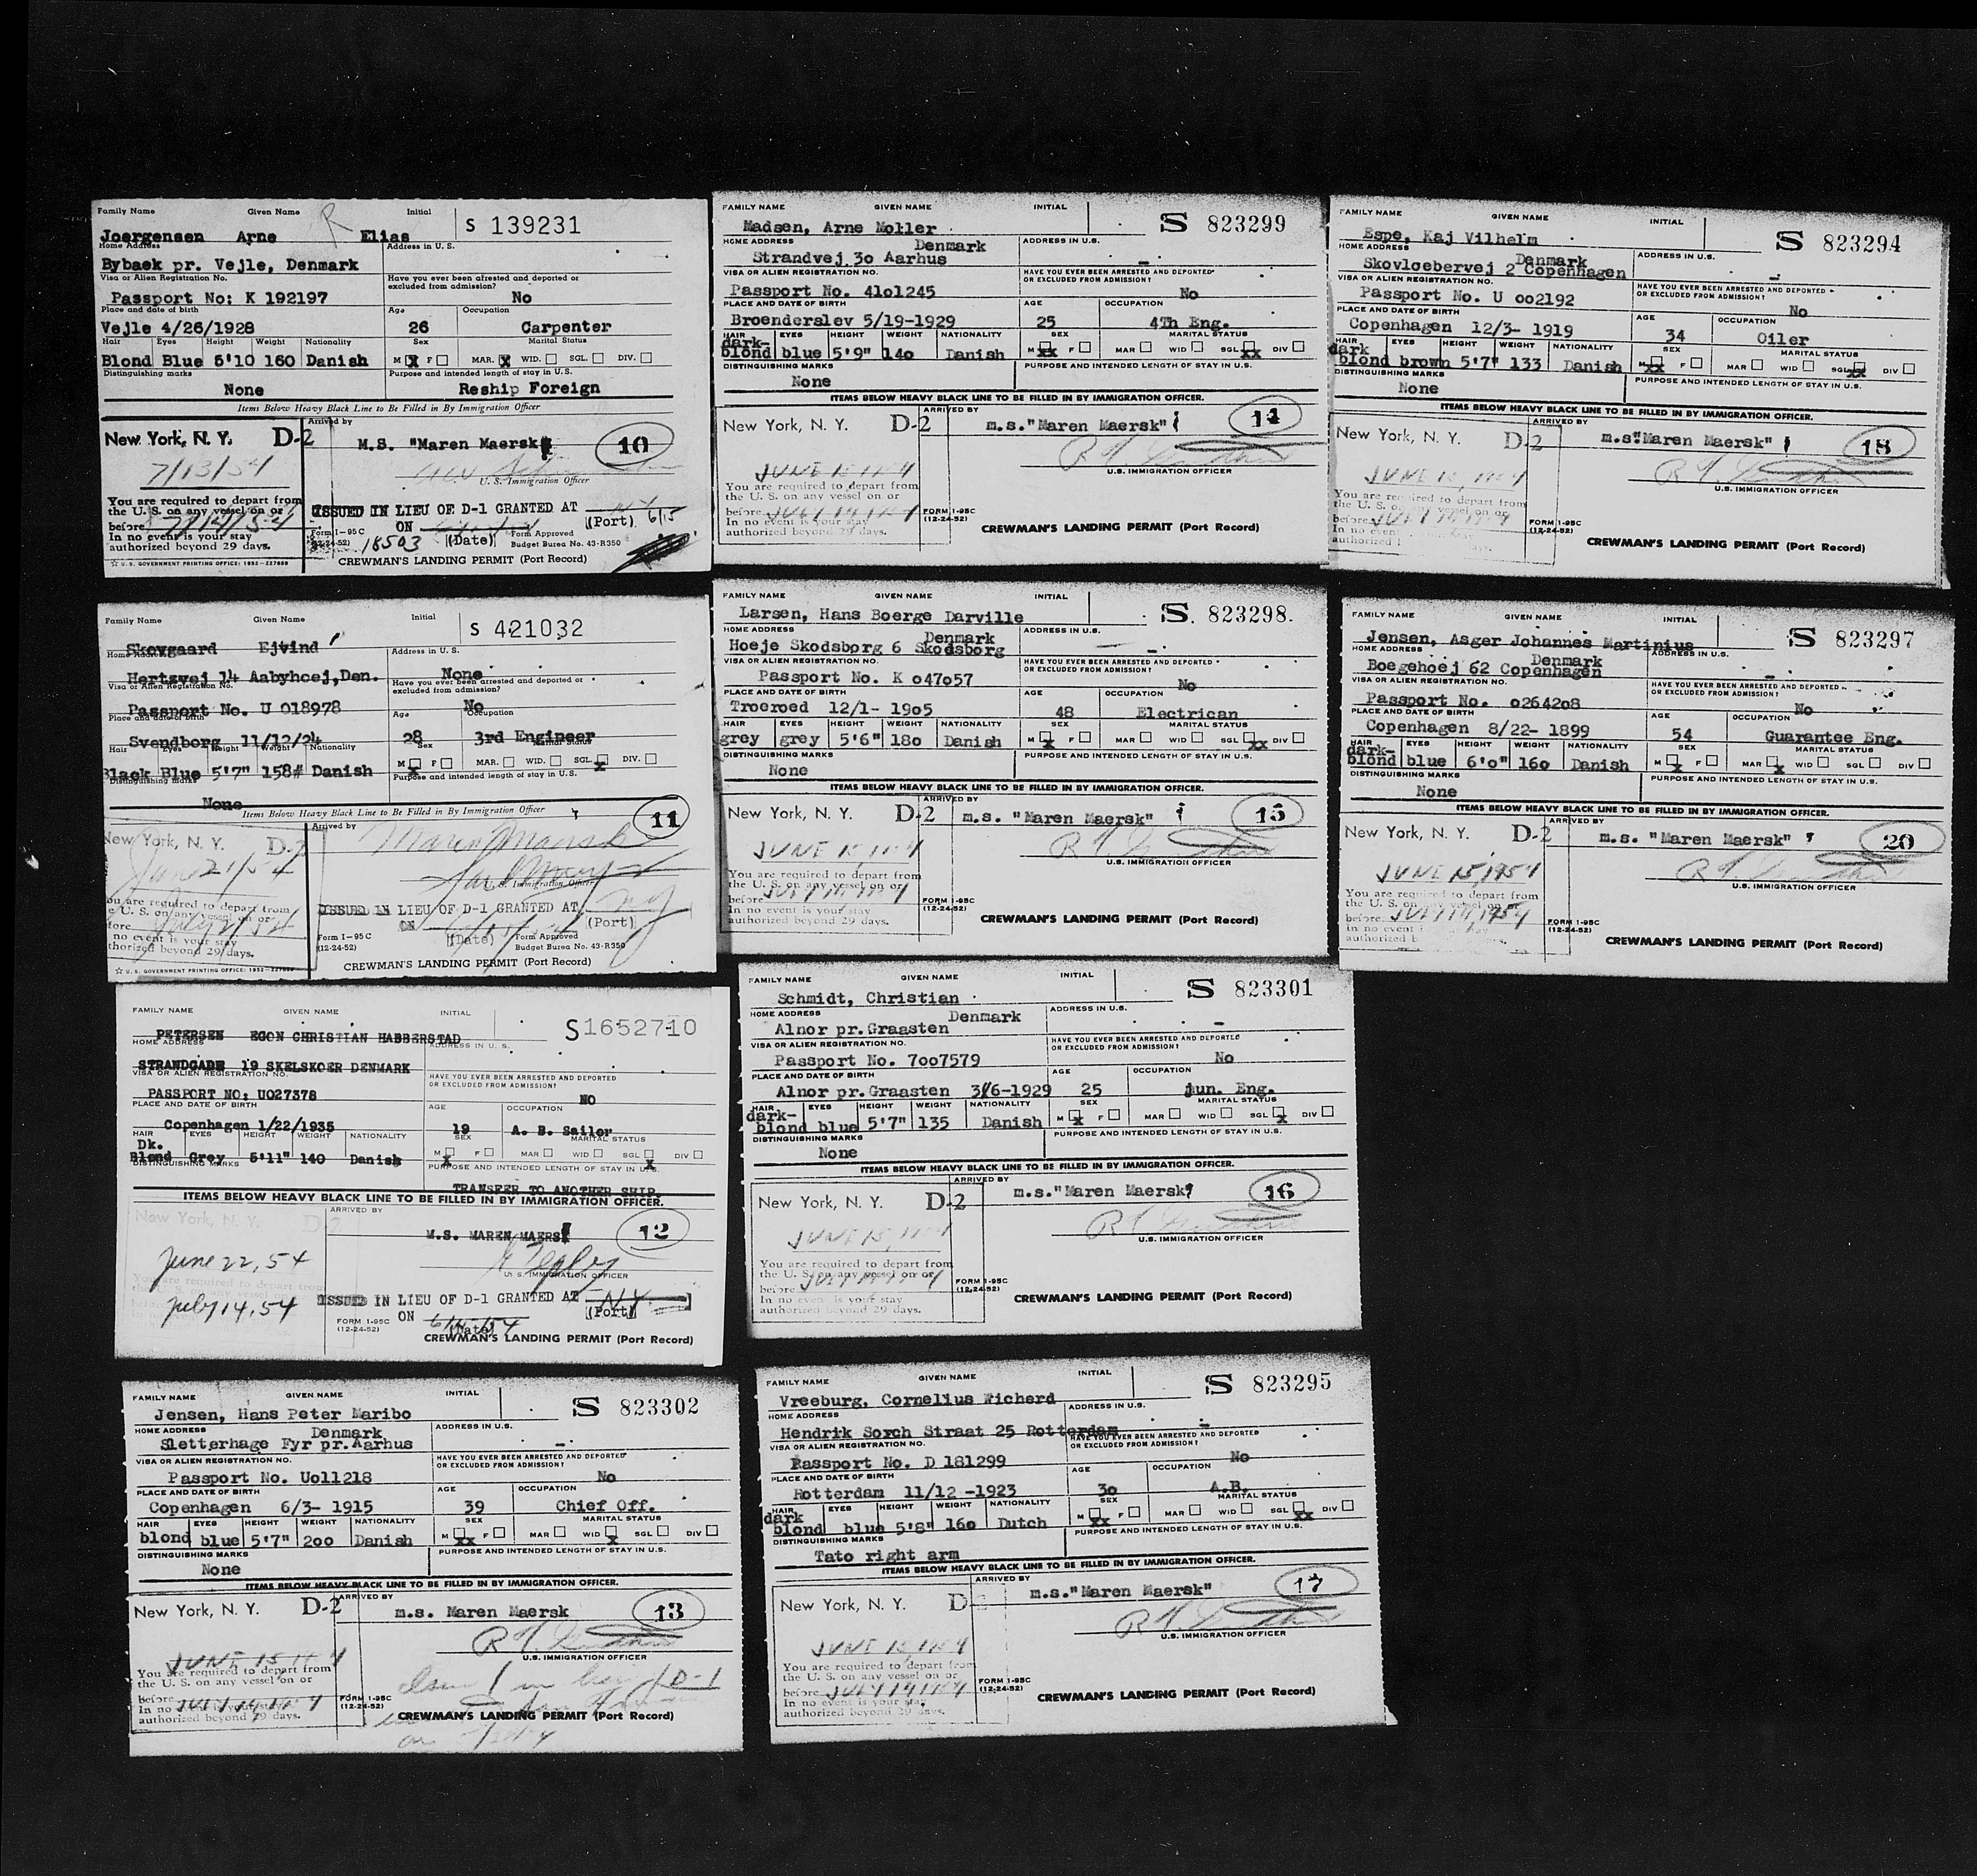 Family Name Given Name Initial
R
S 139231
Joergensen Arne Elias
Home Address Address in U.S.
Bybaek pr. Vejle, Denmark
Visa or Alien Registration No. Have you ever been arrested and deported or excluded from admission?
Passport No: K 192197 No
Place and date of birth Age Occupation
Vejle 4/26/1928 26 Carpenter
Hair Eyes Height Weight Nationality Sex Marital Status
Blond Blue 5'10 160 Danish M X F MAR. X WID. SGL. DIV.
Distinguishing marks Purpose and intended length of stay in U.S.
None Reship Foreign
Items Below Heavy Black Line to Be Filled in By Immigration Officer
New York, N. Y. D-2 Arrived by
M.S. "Maren Maersk 10
7/13/54
U. S. Immigration Officer
You are required to depart from
the U. S. on any vessel on or
before 7/14/54
In no event is your stay
authorized beyond 29 days.
ISSUED IN LIEU OF D-1 GRANTED AT
ON (Date) (Port) 6/15
Form I-95 C
(12-24-52)
18503
Form Approved
Budget Bureau No. 43-R350
CREWMAN'S LANDING PERMIT (Port Record)
☆ U. S. GOVERNMENT PRINTING OFFICE: 1952-227809
Family Name Given Name Initial
S 421032
Skovgaard Ejvind
Home Address Address in U.S.
Hertzvej 14 Aabyhoej,Den. None
Visa or Alien Registration No. Have you ever been arrested and deported or excluded from admission?
Passport No. U 018978 No
Place and date of birth Age Occupation
Svendborg 11/12/24 28 3rd Engineer
Hair Eyes Height Weight Nationality Sex Marital Status
Black Blue 5'7" 158# Danish M X F MAR. WID. SGL. X DIV.
Distinguishing marks Purpose and intended length of stay in U.S.
None
Items Below Heavy Black Line to Be Filled in By Immigration Officer
11
New York, N. Y. D-2 Arrived by
Maren Maersk
June 21/54
U. S. Immigration Officer
You are required to depart from
the U. S. on any vessel on or
before July 2/54
no event is your stay
authorized beyond 29 days.
ISSUED IN LIEU OF D-1 GRANTED AT NY
ON (Date) (Port)
Form I-95 C
(12-24-52)
Form Approved
Budget Burea No. 43-R350
CREWMAN'S LANDING PERMIT (Port Record)
☆ U. S. GOVERNMENT PRINTING OFFICE: 1952-227809
FAMILY NAME GIVEN NAME INITIAL
S1652710
PETERSEN EGON CHRISTIAN HABBERSTAD
HOME ADDRESS ADDRESS IN U. S.
STRANDGADE 19 SKELSKOER DENMARK
VISA OR ALIEN REGISTRATION NO. HAVE YOU EVER BEEN ARRESTED AND DEPORTED OR EXCLUDED FROM ADMISSION?
PASSPORT NO: U027378 NO
PLACE AND DATE OF BIRTH AGE OCCUPATION
Copenhagen 1/22/1935 19 A. B. Sailor
HAIR EYES HEIGHT WEIGHT NATIONALITY SEX MARITAL STATUS
Dk.
Blond Grey 5'11" 140 Danish M X F MAR WID SGL X DIV
DISTINGUISHING MARKS PURPOSE AND INTENDED LENGTH OF STAY IN U.S.
TRANSFER TO ANOTHER SHIP
ITEMS BELOW HEAVY BLACK LINE TO BE FILLED IN BY IMMIGRATION OFFICER.
New York, N. Y. D-2 ARRIVED BY
M.S. MAREN MAERSK 12
June 22, 54
U. S. IMMIGRATION OFFICER
You are required to depart from
July 14, 54
ISSUED IN LIEU OF D-1 GRANTED AT NY
ON (Date) (Port)
FORM I-95C
(12-24-52)
CREWMAN'S LANDING PERMIT (Port Record)
FAMILY NAME GIVEN NAME INITIAL
S 823302
Jensen, Hans Peter Maribo
HOME ADDRESS Denmark ADDRESS IN U.S.
Sletterhage Fyr pr. Aarhus -
VISA OR ALIEN REGISTRATION NO. HAVE YOU EVER BEEN ARRESTED AND DEPORTED OR EXCLUDED FROM ADMISSION?
Passport No. Uo11218 No
PLACE AND DATE OF BIRTH AGE OCCUPATION
Copenhagen 6/3- 1915 39 Chief Off.
HAIR EYES HEIGHT WEIGHT NATIONALITY SEX MARITAL STATUS
blond blue 5'7" 2oo Danish M XX F MAR WID X SGL DIV
DISTINGUISHING MARKS PURPOSE AND INTENDED LENGTH OF STAY IN U.S.
None
ITEMS BELOW HEAVY BLACK LINE TO BE FILLED IN BY IMMIGRATION OFFICER.
New York, N. Y. D-2 ARRIVED BY
m.s. Maren Maersk 13
U.S. IMMIGRATION OFFICER
JUNE 15, 1954
You are required to depart from
the U. S. on any vessel on or
before JULY 14, 1954
In no event is your stay
authorized beyond 29 days.
D-1
FORM I-95C
(12-24-52)
CREWMAN'S LANDING PERMIT (Port Record)
FAMILY NAME GIVEN NAME INITIAL
S 823299
Madsen, Arne Moller
HOME ADDRESS Denmark ADDRESS IN U.S.
Strandvej 3o Aarhus -
VISA OR ALIEN REGISTRATION NO. HAVE YOU EVER BEEN ARRESTED AND DEPORTED OR EXCLUDED FROM ADMISSION?
Passport No. 41o1245 No
PLACE AND DATE OF BIRTH AGE OCCUPATION
Broenderslev 5/19-1929 25 4Th Eng.
HAIR EYES HEIGHT WEIGHT NATIONALITY SEX MARITAL STATUS
dark-
blond blue 5'9" 14o Danish M XX F MAR WID SGL XX DIV
DISTINGUISHING MARKS PURPOSE AND INTENDED LENGTH OF STAY IN U.S.
None
ITEMS BELOW HEAVY BLACK LINE TO BE FILLED IN BY IMMIGRATION OFFICER.
New York, N. Y. D-2 ARRIVED BY
m.s."Maren Maersk" 14
U.S. IMMIGRATION OFFICER
JUNE 15 1954
You are required to depart from
the U. S. on any vessel on or
before JULY 14 1954
In no event is your stay
authorized beyond 29 days.
FORM I-95C
(12-24-52)
CREWMAN'S LANDING PERMIT (Port Record)
FAMILY NAME GIVEN NAME INITIAL
S. 823298.
Larsen, Hans Boerge Darville
HOME ADDRESS Denmark ADDRESS IN U.S.
Hoeje Skodsborg 6 Skodsborg -
VISA OR ALIEN REGISTRATION NO. HAVE YOU EVER BEEN ARRESTED AND DEPORTED OR EXCLUDED FROM ADMISSION?
Passport No. K o47o57 No
PLACE AND DATE OF BIRTH AGE OCCUPATION
Troeroed 12/1- 19o5 48 Electrican
HAIR EYES HEIGHT WEIGHT NATIONALITY SEX MARITAL STATUS
grey grey 5'6" 18o Danish M X F MAR WID SGL XX DIV
DISTINGUISHING MARKS PURPOSE AND INTENDED LENGTH OF STAY IN U.S.
None
ITEMS BELOW HEAVY BLACK LINE TO BE FILLED IN BY IMMIGRATION OFFICER.
New York, N. Y. D-2 ARRIVED BY
m.s. "Maren Maersk" 15
U.S. IMMIGRATION OFFICER
JUNE 15, 1954
You are required to depart from
the U. S. on any vessel on or
before JULY 14 1954
In no event is your stay
authorized beyond 29 days.
FORM I-95C
(12-24-52)
CREWMAN'S LANDING PERMIT (Port Record)
FAMILY NAME GIVEN NAME INITIAL
S 823301
Schmidt, Christian
HOME ADDRESS Denmark ADDRESS IN U.S.
Alnor pr.Graasten -
VISA OR ALIEN REGISTRATION NO. HAVE YOU EVER BEEN ARRESTED AND DEPORTED OR EXCLUDED FROM ADMISSION?
Passport No. 7oo7579 No
PLACE AND DATE OF BIRTH AGE OCCUPATION
Alnor pr.Graasten 3/6-1929 25 jun. Eng.
HAIR EYES HEIGHT WEIGHT NATIONALITY SEX MARITAL STATUS
dark-
blond blue 5'7" 135 Danish M X F MAR WID SGL X DIV
DISTINGUISHING MARKS PURPOSE AND INTENDED LENGTH OF STAY IN U.S.
None
ITEMS BELOW HEAVY BLACK LINE TO BE FILLED IN BY IMMIGRATION OFFICER.
New York, N. Y. D-2 ARRIVED BY
m.s."Maren Maersk" 16
U.S. IMMIGRATION OFFICER
JUNE 15, 1954
You are required to depart from
the U. S. on any vessel on or
before
In no event is your stay
authorized beyond 29 days.
FORM I-95C
(12-24-52)
CREWMAN'S LANDING PERMIT (Port Record)
FAMILY NAME GIVEN NAME INITIAL
S 823295
Vreeburg, Cornelius Wicherd
HOME ADDRESS ADDRESS IN U.S.
Hendrik Sorch Straat 25 Rotterdam -
VISA OR ALIEN REGISTRATION NO. HAVE YOU EVER BEEN ARRESTED AND DEPORTED OR EXCLUDED FROM ADMISSION?
Passport No. D 181299 No
PLACE AND DATE OF BIRTH AGE OCCUPATION
Rotterdam 11/12 -1923 3o A.B.
HAIR EYES HEIGHT WEIGHT NATIONALITY SEX MARITAL STATUS
dark
blond blue 5'8" 16o Dutch M XX F MAR WID SGL XX DIV
DISTINGUISHING MARKS PURPOSE AND INTENDED LENGTH OF STAY IN U.S.
Tato right arm
ITEMS BELOW HEAVY BLACK LINE TO BE FILLED IN BY IMMIGRATION OFFICER.
New York, N. Y. D- ARRIVED BY
m.s."Maren Maersk" 17
U.S. IMMIGRATION OFFICER
JUNE 15, 1954
You are required to depart from
the U. S. on any vessel on or
before JULY 14 1954
In no event is your stay
authorized beyond 29 days.
FORM I-95C
(12-24-52)
CREWMAN'S LANDING PERMIT (Port Record)
FAMILY NAME GIVEN NAME INITIAL
S 823294
Espe, Kaj Vilhelm
HOME ADDRESS Denmark ADDRESS IN U.S.
Skovloebervej 2 Copenhagen -
VISA OR ALIEN REGISTRATION NO. HAVE YOU EVER BEEN ARRESTED AND DEPORTED OR EXCLUDED FROM ADMISSION?
Passport No. U oo2192 No
PLACE AND DATE OF BIRTH AGE OCCUPATION
Copenhagen 12/3- 1919 34 Oiler
HAIR EYES HEIGHT WEIGHT NATIONALITY SEX MARITAL STATUS
dark
blond brown 5'7" 133 Danish M XX F MAR WID SGL XX DIV
DISTINGUISHING MARKS PURPOSE AND INTENDED LENGTH OF STAY IN U.S.
None
ITEMS BELOW HEAVY BLACK LINE TO BE FILLED IN BY IMMIGRATION OFFICER.
New York, N. Y. D-2 ARRIVED BY
m.s"Maren Maersk" 18
U.S. IMMIGRATION OFFICER
JUNE 15, 1954
You are required to depart from
the U. S. on any vessel on or
before JULY 14 1954
In no event
authorized days.
FORM I-95C
(12-24-52)
CREWMAN'S LANDING PERMIT (Port Record)
FAMILY NAME GIVEN NAME INITIAL
S 823297
Jensen, Asger Johannes Martinius
HOME ADDRESS Denmark ADDRESS IN U.S.
Boegehoej 62 Copenhagen -
VISA OR ALIEN REGISTRATION NO. HAVE YOU EVER BEEN ARRESTED AND DEPORTED OR EXCLUDED FROM ADMISSION?
Passport No. o2642o8 No
PLACE AND DATE OF BIRTH AGE OCCUPATION
Copenhagen 8/22- 1899 54 Guarantee Eng.
HAIR EYES HEIGHT WEIGHT NATIONALITY SEX MARITAL STATUS
dark-
blond blue 6'o" 16o Danish M X F MAR X WID SGL DIV
DISTINGUISHING MARKS PURPOSE AND INTENDED LENGTH OF STAY IN U.S.
None
ITEMS BELOW HEAVY BLACK LINE TO BE FILLED IN BY IMMIGRATION OFFICER.
New York, N. Y. D-2 ARRIVED BY
m.s. "Maren Maersk" 20
U.S. IMMIGRATION OFFICER
JUNE 15, 1954
You are required to depart from
the U. S. on any vessel on or
before JULY 14, 1954
In no event is your stay
authorized
FORM I-95C
(12-24-52)
CREWMAN'S LANDING PERMIT (Port Record)